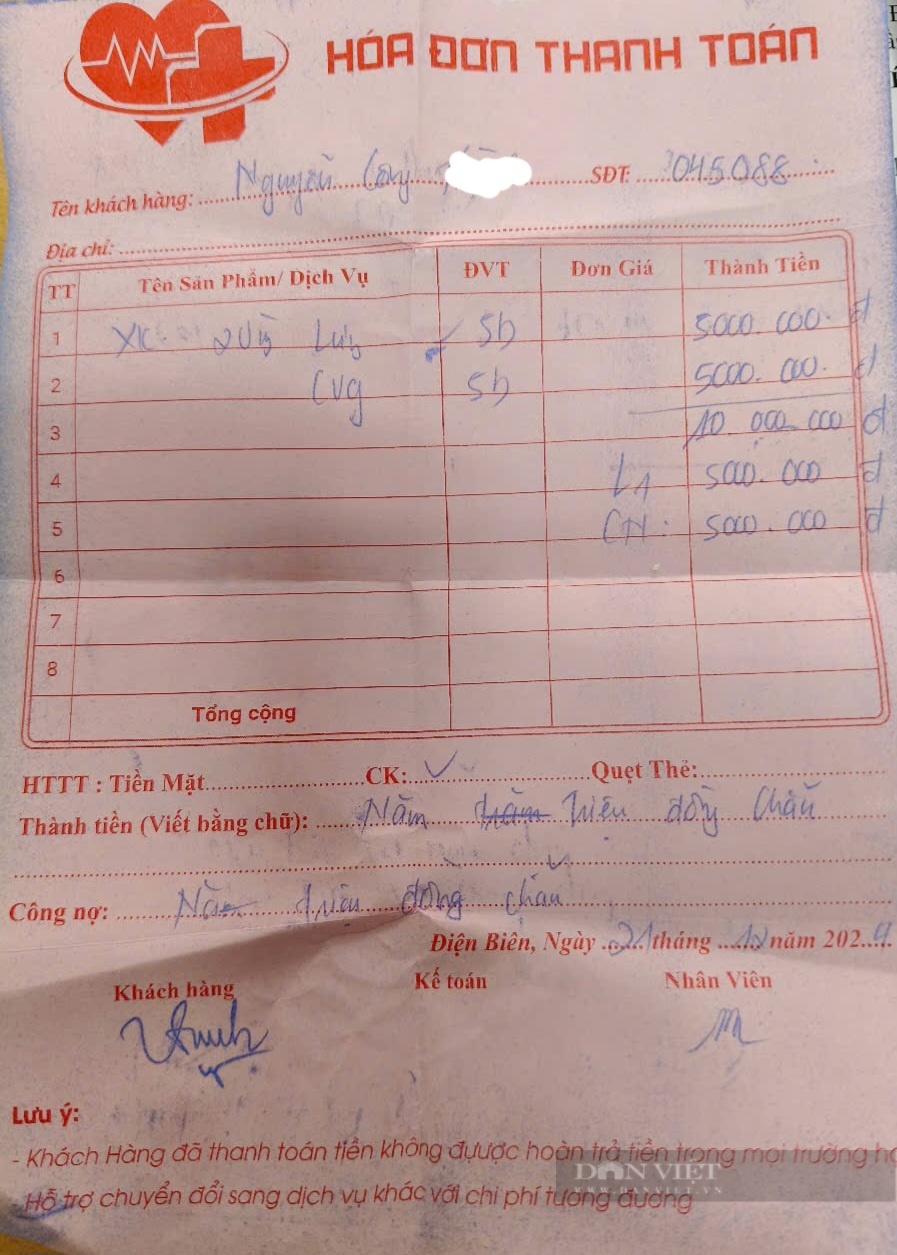 HÓA ĐƠN THANH TOÁN
Tên khách hàng: Nguyễn Công SĐT: 045088
Địa chỉ:
TT Tên Sản Phẩm/ Dịch Vụ ĐVT Đơn Giá Thành Tiền
1 XK 2 Vùg Lưg 5b 5000.000 đ
2 CVg 5b 5000.000 đ
3 10 000 000 đ
4 L1 5000.000 đ
5 CN: 5000.000 đ
6
7
8
Tổng cộng
HTTT : Tiền Mặt CK: ✓ Quẹt Thẻ:
Thành tiền (Viết bằng chữ): Năm trăm Triệu đồng Chẵn
Công nợ: Năm triệu đồng chẵn
Điện Biên, Ngày 21 tháng 12 năm 2024
Khách hàng Kế toán Nhân Viên
Lưu ý:
- Khách Hàng đã thanh toán tiền không đựược hoàn trả tiền trong mọi trường
- Hỗ trợ chuyển đổi sang dịch vụ khác với chi phí tương đương
DÂN VIỆT
WWW.DANVIET.VN